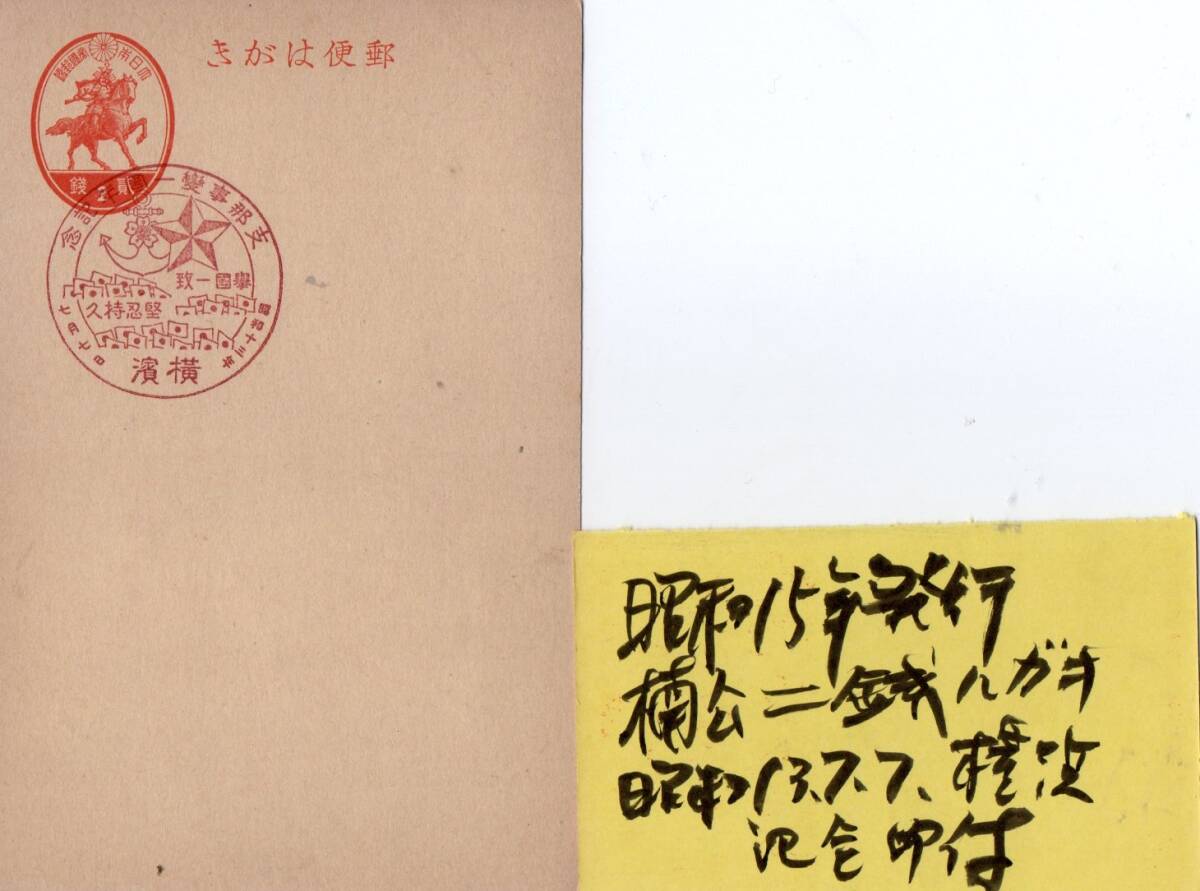 郵便はがき
大日本帝國郵便
貳錢
2
支那事變一周年記念
擧國一致
堅忍持久
昭和十三年七月七日
橫濱
昭和15年発行
楠公二銭ハガキ
昭和13.7.7.横浜
記念印付